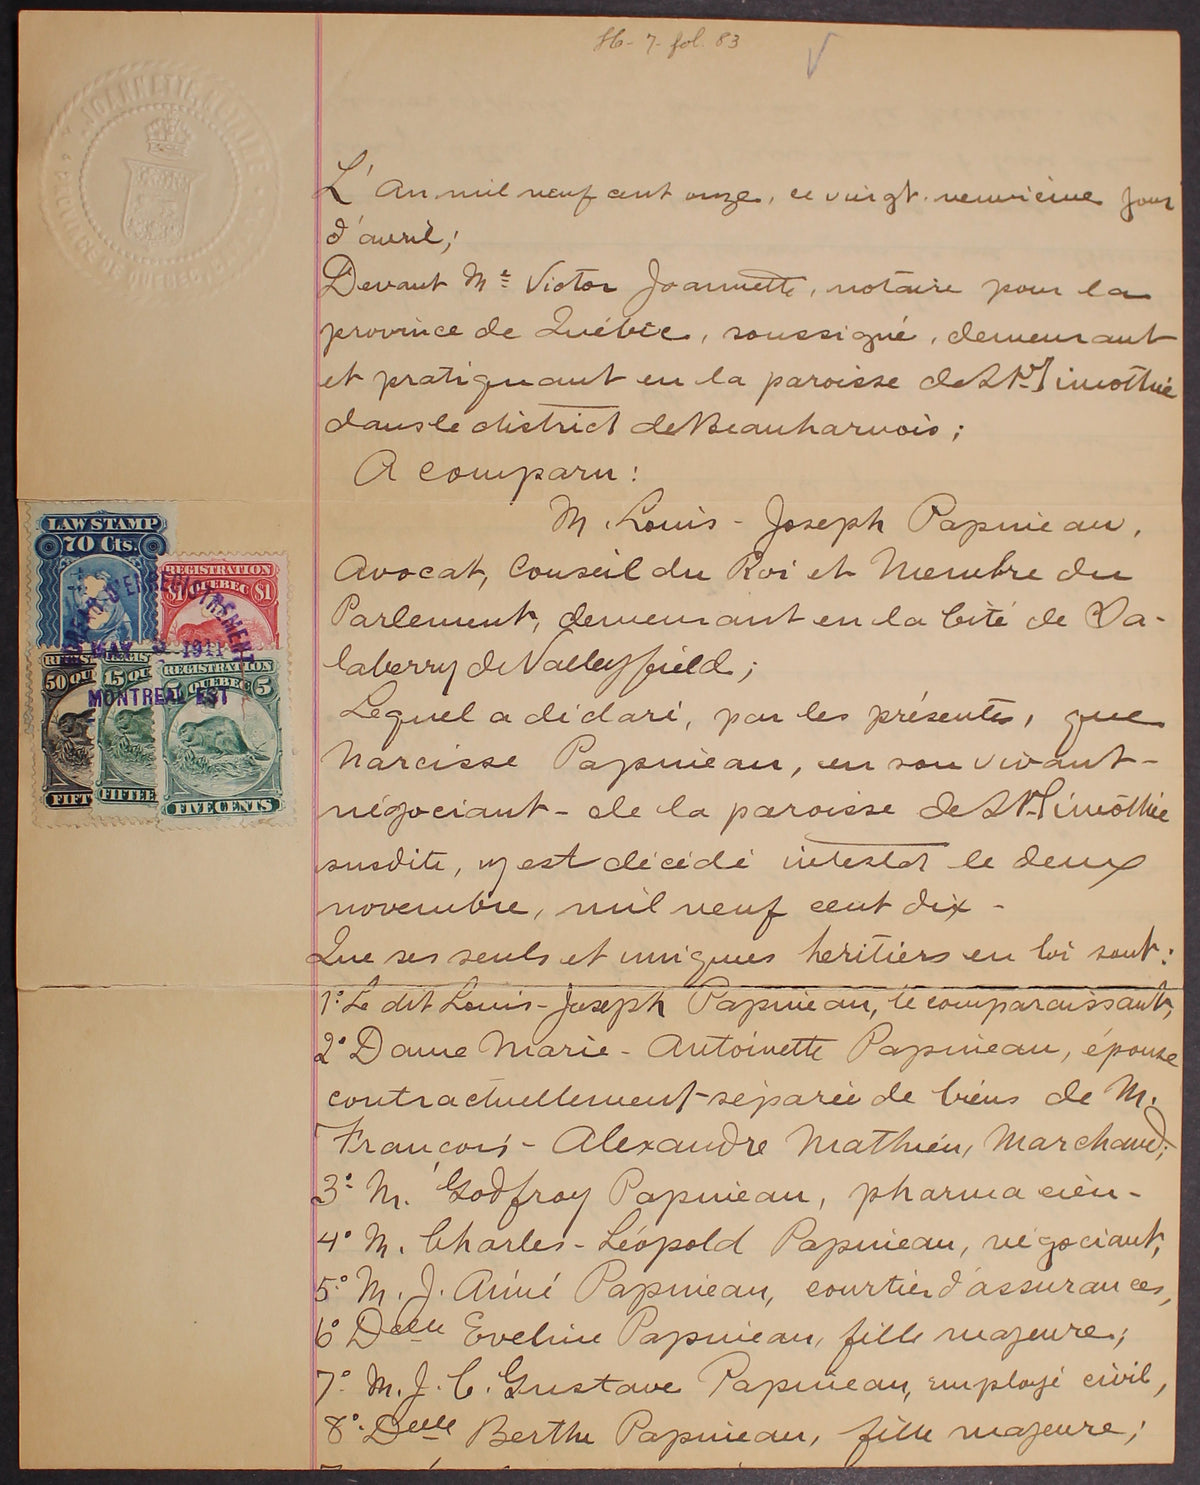 86- 7- fol. 83
JOANNETTE, NOTAIRE
PROVINCE DE QUEBEC
L'An mil neuf cent onze, ce vingt-neuvième jour
d'avril;
Devant Mtre Victor Joannette, notaire pour la
province de Québec, soussigné, demeurant
et pratiquant en la paroisse de St-Timothée
dans le district de Beauharnois;
A comparu:
M. Louis-Joseph Papineau,
Avocat, Conseil du Roi et Membre du
Parlement, demeurant en la Cité de Sa-
laberry de Valleyfield;
Lequel a déclaré, par les présentes, que
Narcisse Papineau, en son vivant-
négociant- de la paroisse de St-Timothée
susdite, y est décédé intestat le deux
novembre, mil neuf cent dix-
Que ses seuls et uniques heritiers en loi sont:
1° Le dit Louis-Joseph Papineau, le comparaissant,
2° Dame Marie-Antoinette Papineau, épouse
contractuellement-séparée de biens de M.
François-Alexandre Mathieu, Marchand;
3° M. Godfroy Papineau, pharmacien-
4° M. Charles-Léopold Papineau, négociant,
5° M. J. Aimé Papineau, courtier d'assurances,
6° Delle Eveline Papineau, fille majeure;
7° M. J. C. Gustave Papineau, employé civil,
8° Delle Berthe Papineau, fille majeure;
LAW STAMP
70 Cts.
REGISTRATION
$1 QUEBEC $1
BUREAU D'ENREGISTREMENT
MAY 3 1911
MONTREAL EST
50 QU
15 QU
REGISTRATION
5 QUEBEC 5
FIFT
FIFTEE
FIVE CENTS